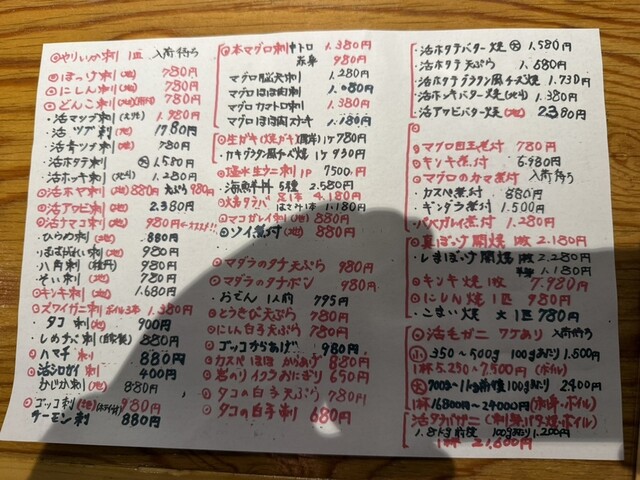 ◎やりいか刺 1匹 入荷待ち
◎ほっけ刺(地) 780円
◎にしん刺(地) 780円
◎どんこ刺(地) 780円
・活マツブ刺 1.980円
・活ツブ刺(地) 1780円
・活青ツブ刺(地) 780円
・活ホタテ刺 大 1.580円
・活ホッキ刺 1.280円
◎活ホヤ刺(地)880円 天ぷら980円
◎活アワビ刺 2.380円
◎活ナマコ刺(地) 980円
ひらめ刺(地) 880円
刺(地) 980円
八角刺 980円
そい刺(地) 980円
◎キンキ刺 1.680円
◎ズワイガニ刺 ボイル3本 1.380円
タコ刺(地) 900円
しめさば刺(自家製) 880円
◎ハマチ刺 880円
◎活シロガイ刺 400円
かじか刺(地) 880円
◎ゴッコ刺(地) 980円
サーモン刺 880円
◎本マグロ刺 中トロ 1.380円
赤身 980円
マグロ脳天刺 1.280円
マグロほほ肉刺 1.080円
マグロカマトロ刺 1.380円
マグロほほ肉ステーキ 1.180円
◎生ガキ(焼ガキ) 1ケ780円
・カキグラタン風チーズ焼 1ケ930円
◎塩水生ウニ刺 1P 7500円
・海鮮丼 5種 2.580円
◎大あさり 足1本 4.180円
はさみ1本 1.180円
◎マコガレイ刺(地) 880円
◎ソイ煮付(地) 880円
◎マダラのタチ天ぷら 980円
◎マダラのタチポン 980円
おでん 1人前 795円
◎とうきび天ぷら 780円
◎にしん白子天ぷら 780円
◎ゴッコからあげ 980円
◎カスベほほ からあげ 880円
◎岩のりイクラおにぎり 650円
◎タコの白子天ぷら 780円
◎タコの白子刺 680円
・活ホタテバター焼 大 1.580円
・活ホタテ天ぷら 1.680円
・活ホタテグラタン風チーズ焼 1.730円
・活ホッキバター焼 1.380円
・活アワビバター焼(地) 2380円
マグロ目玉煮付 780円
・キンキ煮付 6.980円
◎マグロのカマ煮付 入荷待ち
・カスベ煮付 880円
・ギンダラ煮付 1.500円
・ババガレイ煮付 1.280円
◎真ほっけ開焼 1枚 2.180円
・しまほっけ開焼 1枚 2.280円
半身 1.180円
◎キンキ焼 1枚 7.980円
◎にしん焼 1匹 980円
・こまい焼 大1匹 780円
◎活毛ガニ ワケあり 入荷待ち
小 350〜500g 100gあたり 1.500円
1杯 5.250〜7.500円(ボイル)
大 700g〜1kg前後 100gあたり 2400円
1杯 16800円〜24000円(刺身・ボイル)
活タラバガニ(刺身・バター焼・ボイル)
1.8kg前後 100gあたり 1.200円
1杯 21.600円